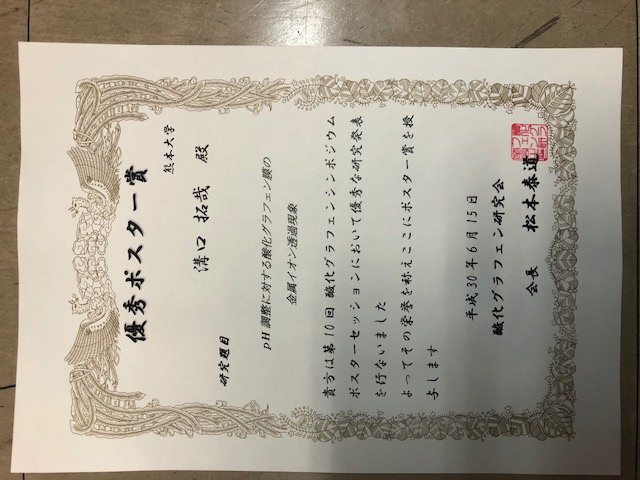 優秀ポスター賞
熊本大学
溝口 拓哉 殿
研究題目
pH 調整に対する酸化グラフェン膜の
金属イオン透過現象
貴方は第10回 酸化グラフェンシンポジウム
ポスターセッションにおいて優秀な研究発表
を行ないました
よってその栄誉を称えここにポスター賞を授
与します
平成30年6月15日
酸化グラフェン研究会
会長 松本泰道